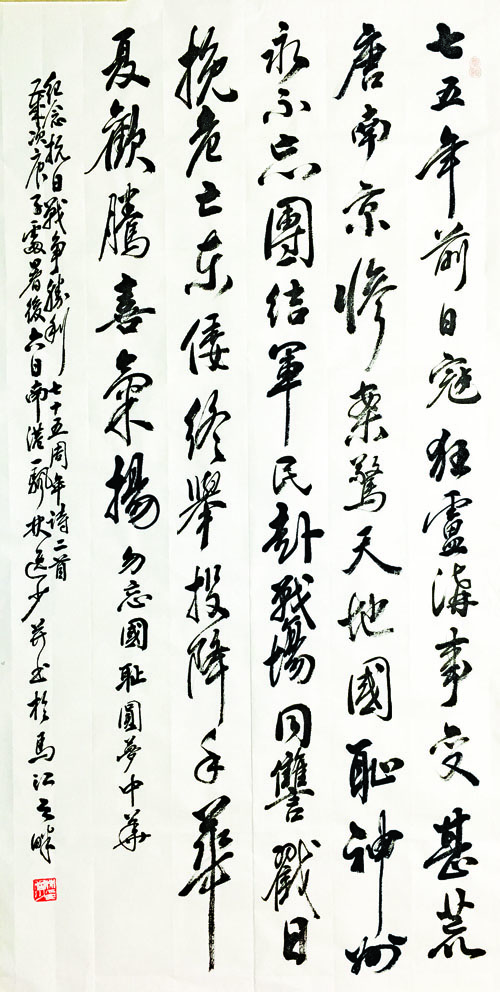 七五年前日寇狂盧溝事变甚荒
唐南京惨案驚天地國恥神州
永不忘團结軍民赴戰場同讐戳日
挽危亡东倭终舉投降手華
夏歡騰喜氣揚 勿忘國恥圓夢中華
纪念抗日戰争勝利七十五周年诗二首
歲次庚子處暑後六日南港一瓢林逸少并书於馬江之畔